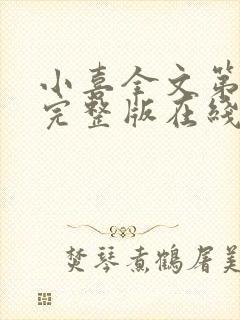 小喜全文第
完整版在线
焚琴煮鹤屠美